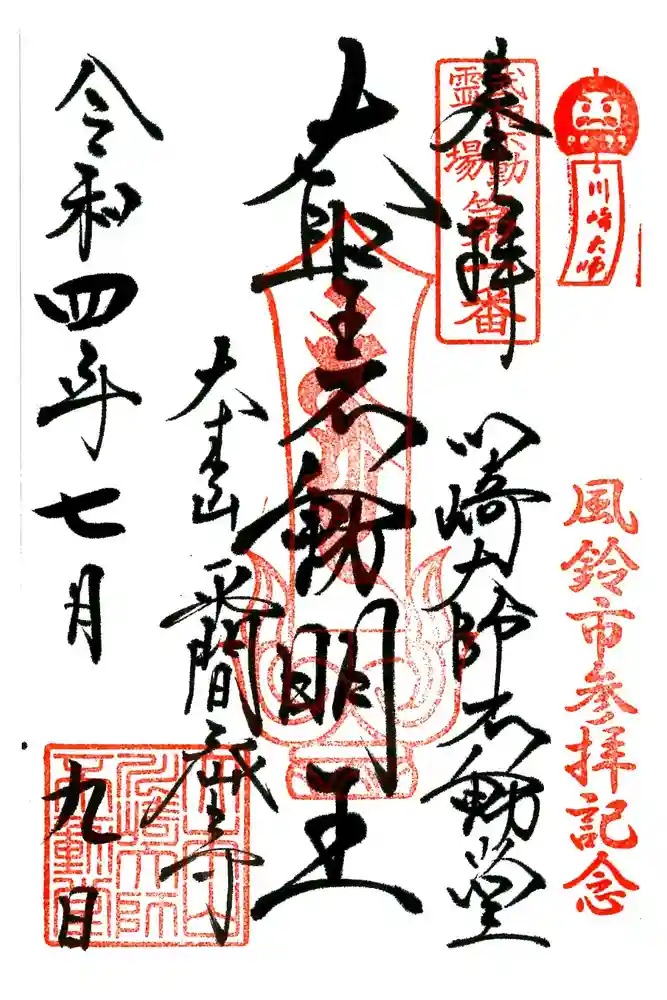 川崎大師
風鈴市参拝記念
奉拝
武相不動
霊場
第一番
川崎大師不動堂
大聖不動明王
大本山平間寺
令和四年七月九日
川崎大師
不動堂